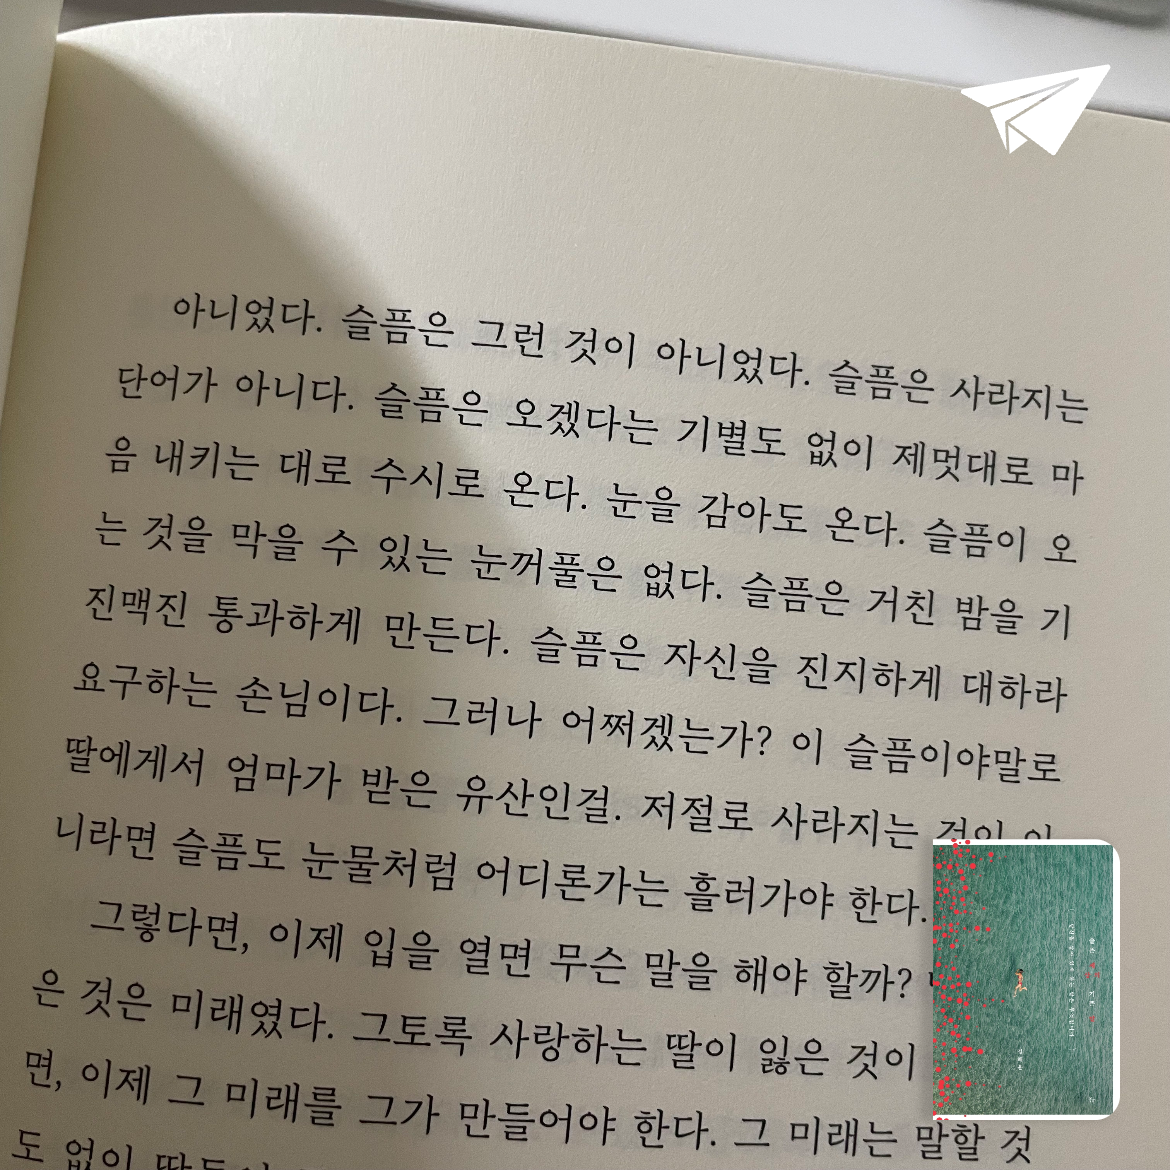 아니었다. 슬픔은 그런 것이 아니었다. 슬픔은 사라지는
단어가 아니다. 슬픔은 오겠다는 기별도 없이 제멋대로 마
음 내키는 대로 수시로 온다. 눈을 감아도 온다. 슬픔이 오
는 것을 막을 수 있는 눈꺼풀은 없다. 슬픔은 거친 밤을 기
진맥진 통과하게 만든다. 슬픔은 자신을 진지하게 대하라
요구하는 손님이다. 그러나 어쩌겠는가? 이 슬픔이야말로
딸에게서 엄마가 받은 유산인걸. 저절로 사라지는 것이 아
니라면 슬픔도 눈물처럼 어디론가는 흘러가야 한다.
그렇다면, 이제 입을 열면 무슨 말을 해야 할까?
은 것은 미래였다. 그토록 사랑하는 딸이 잃은 것이
면, 이제 그 미래를 그가 만들어야 한다. 그 미래는 말할 것
도 없이